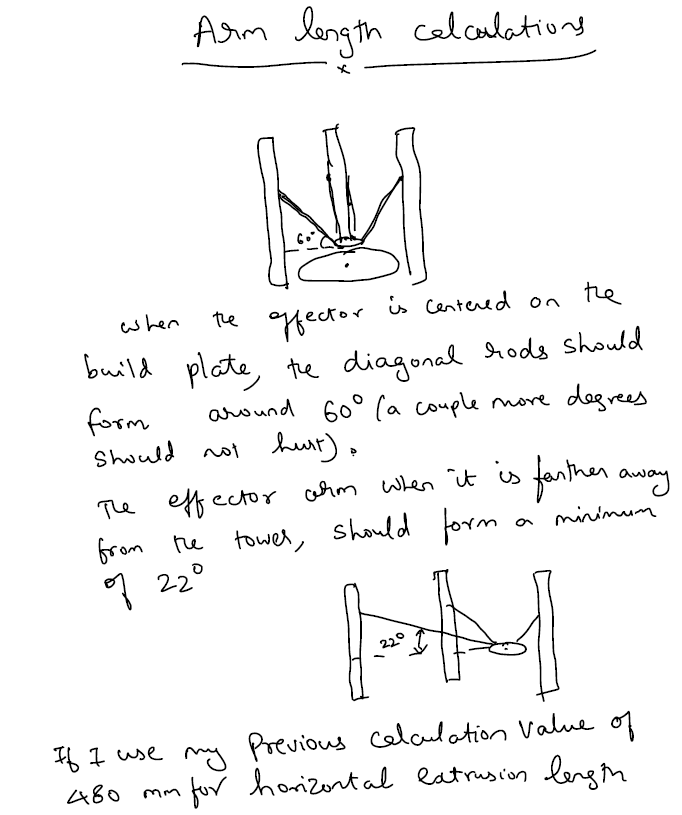 Arm length calculations
x
60°
when the effector is centered on the
build plate, the diagonal rods should
form around 60° (a couple more degrees
should not hurt).
The effector arm when it is farther away
from the tower, should form a minimum
of 22°
22°
If I use my previous calculation value of
480 mm for horizontal extrusion length